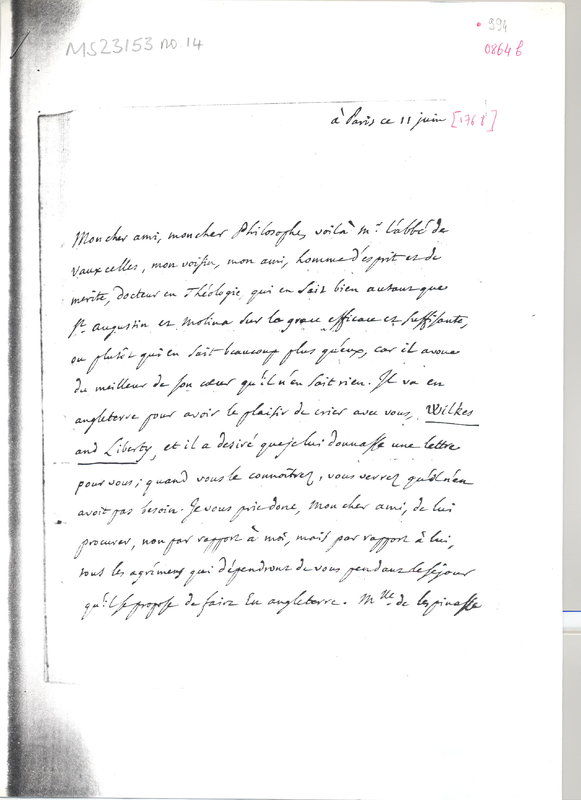 • 994
MS23153 no. 14
0864 b
à Paris ce 11 juin [1768]
Mon cher ami, mon cher Philosophe, voilà mr. l'abbé de
Vauxcelles, mon voisin, mon ami, homme d'esprit et de
merite, docteur en Théologie, qui en sait bien autant que
St. augustin et Molina sur la grace efficace et suffisante,
ou plutôt qui en sait beaucoup plus qu'eux, car il avoue
du meilleur de son cœur qu'il n'en sait rien. Il va en
angleterre pour avoir le plaisir de crier avec vous, Wilkes
and Liberty, et il a desiré que je lui donnasse une lettre
pour vous; quand vous le connoîtrez, vous verrez qu'il n'en
avoit pas besoin. Je vous prie donc, mon cher ami, de lui
procurer, non par rapport à moi, mais par rapport à lui,
tous les agrémens qui dépendront de vous pendant le séjour
qu'il se propose de faire en angleterre. Mlle. de lespinasse